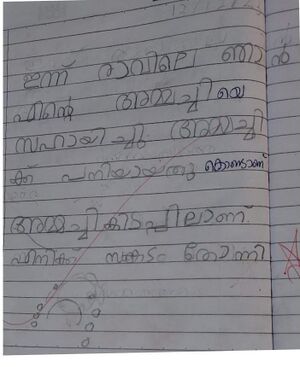 ഇന്ന് രാവിലെ ഞാൻ
എന്റെ അമ്മച്ചിയെ
സഹായിച്ചു. അമ്മച്ചി
ക്ക് പനിയായതു കൊണ്ടാണ്
അമ്മച്ചി കിടപ്പിലാണ്.
എനിക്ക സങ്കടം തോന്നി